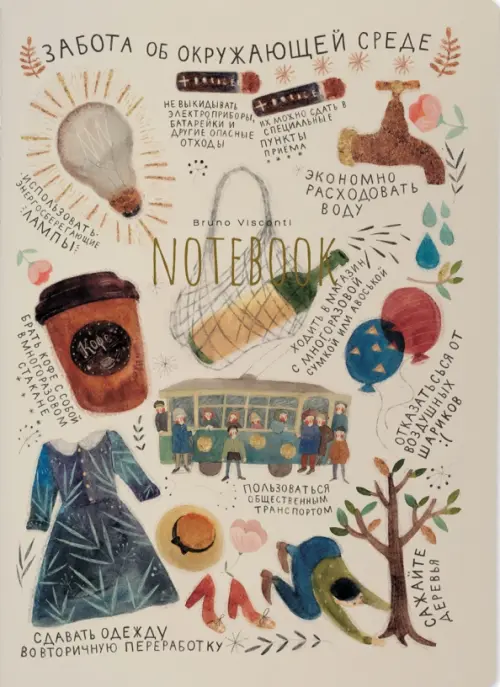 ЗАБОТА ОБ ОКРУЖАЮЩЕЙ СРЕДЕ
НЕ ВЫКИДЫВАТЬ
ЭЛЕКТРОПРИБОРЫ,
БАТАРЕЙКИ И
ДРУГИЕ ОПАСНЫЕ
ОТХОДЫ
ИХ МОЖНО СДАТЬ В
СПЕЦИАЛЬНЫЕ
ПУНКТЫ
ПРИЁМА
ЭКОНОМНО
РАСХОДОВАТЬ
ВОДУ
ИСПОЛЬЗОВАТЬ
ЭНЕРГОСБЕРЕГАЮЩИЕ
ЛАМПЫ
Bruno Visconti
NOTEBOOK
ХОДИТЬ В МАГАЗИН
С МНОГОРАЗОВОЙ
СУМКОЙ ИЛИ АВОСЬКОЙ
Кофе
БРАТЬ КОФЕ С СОБОЙ
В МНОГОРАЗОВОМ
СТАКАНЕ
ОТКАЗАТЬСЬЯ ОТ
ВОЗДУШНЫХ
ШАРИКОВ
:(
ПОЛЬЗОВАТЬСЯ
ОБЩЕСТВЕННЫМ
ТРАНСПОРТОМ
САЖАЙТЕ
ДЕРЕВЬЯ
СДАВАТЬ ОДЕЖДУ
ВО ВТОРИЧНУЮ ПЕРЕРАБОТКУ